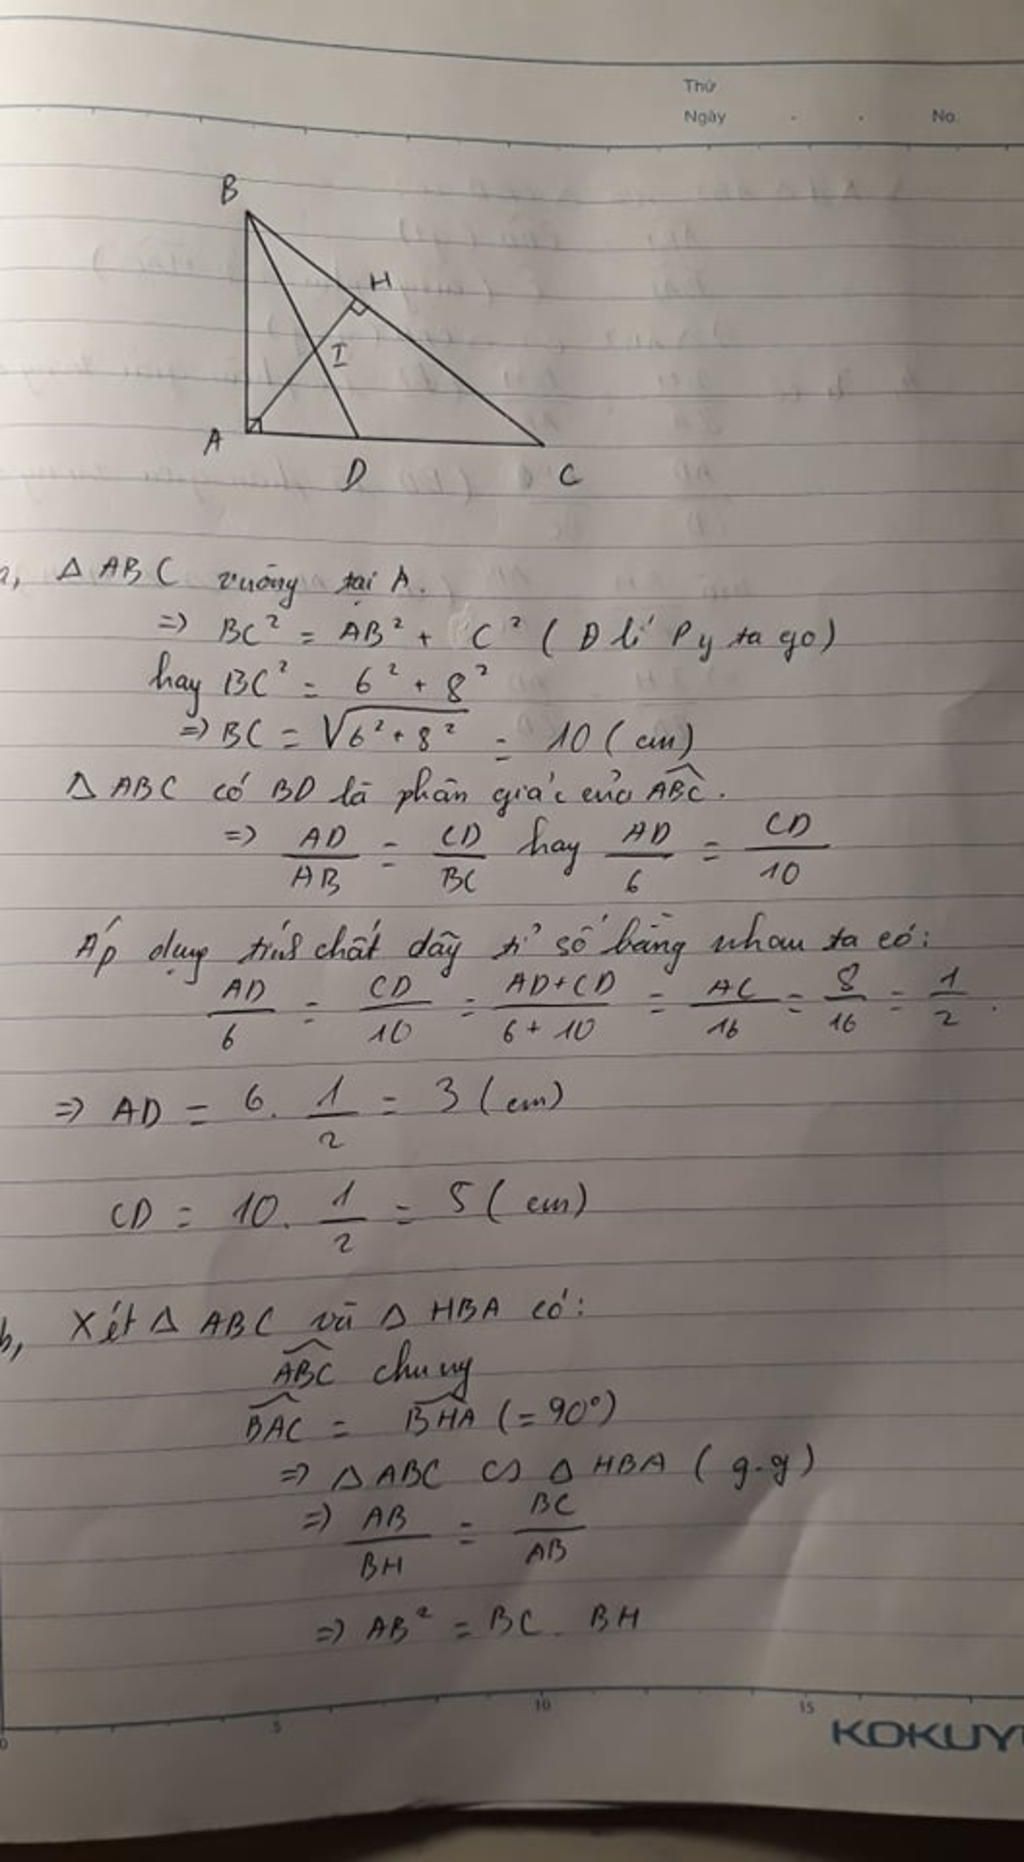 Thứ
Ngày . . No.
B
H
I
A
D
C
a, Δ ABC vuông tại A.
=> BC² = AB² + C² ( Đ lí Py ta go)
hay BC² = 6² + 8²
=> BC = √6² + 8² = 10 ( cm)
Δ ABC có BD là phân giác của ABC.
=> AD/AB = CD/BC hay AD/6 = CD/10
Áp dụng tính chất dãy tỉ số bằng nhau ta có:
AD/6 = CD/10 = AD+CD/6+10 = AC/16 = 8/16 = 1/2 .
=> AD = 6. 1/2 = 3 ( cm)
CD = 10. 1/2 = 5 ( cm)
b, Xét Δ ABC và Δ HBA có:
ABC chung
BAC = BHA (= 90°)
=> Δ ABC ∽ Δ HBA ( g.g)
=> AB/BH = BC/AB
=> AB² = BC . BH
0 5 10 15
KOKUY